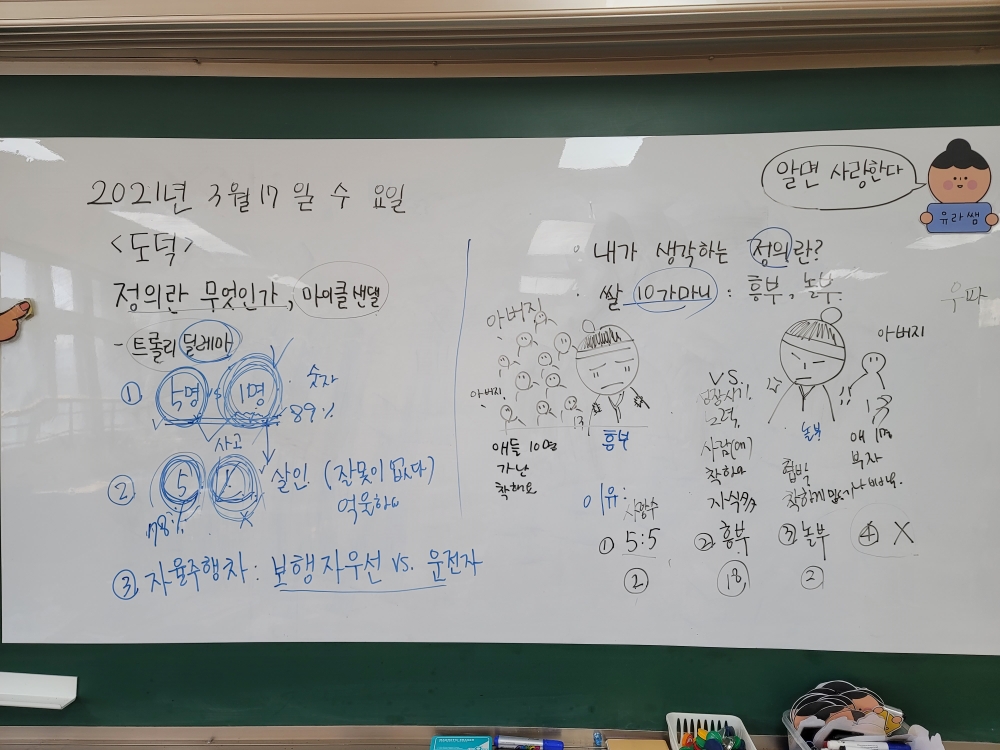 2021년 3월 17일 수요일
<도덕>
정의란 무엇인가, 마이클 샌델
- 트롤리 딜레마
① 5명 vs 1명 숫자
89%
사고
② 5 1 살인 (잘못이 없다)
억울하다
78%
③ 자율주행차 : 보행자우선 vs. 운전자
알면 사랑한다
유라쌤
내가 생각하는 정의란?
· 쌀 10가마니 : 흥부, 놀부
아버지
아버지
흥부
애들 10명
가난
착해요
vs.
노력
착하다
놀부
아버지
애 1명
부자
협박
이유:
① 5:5
②
② 흥부
18
③ 놀부
②
④ X